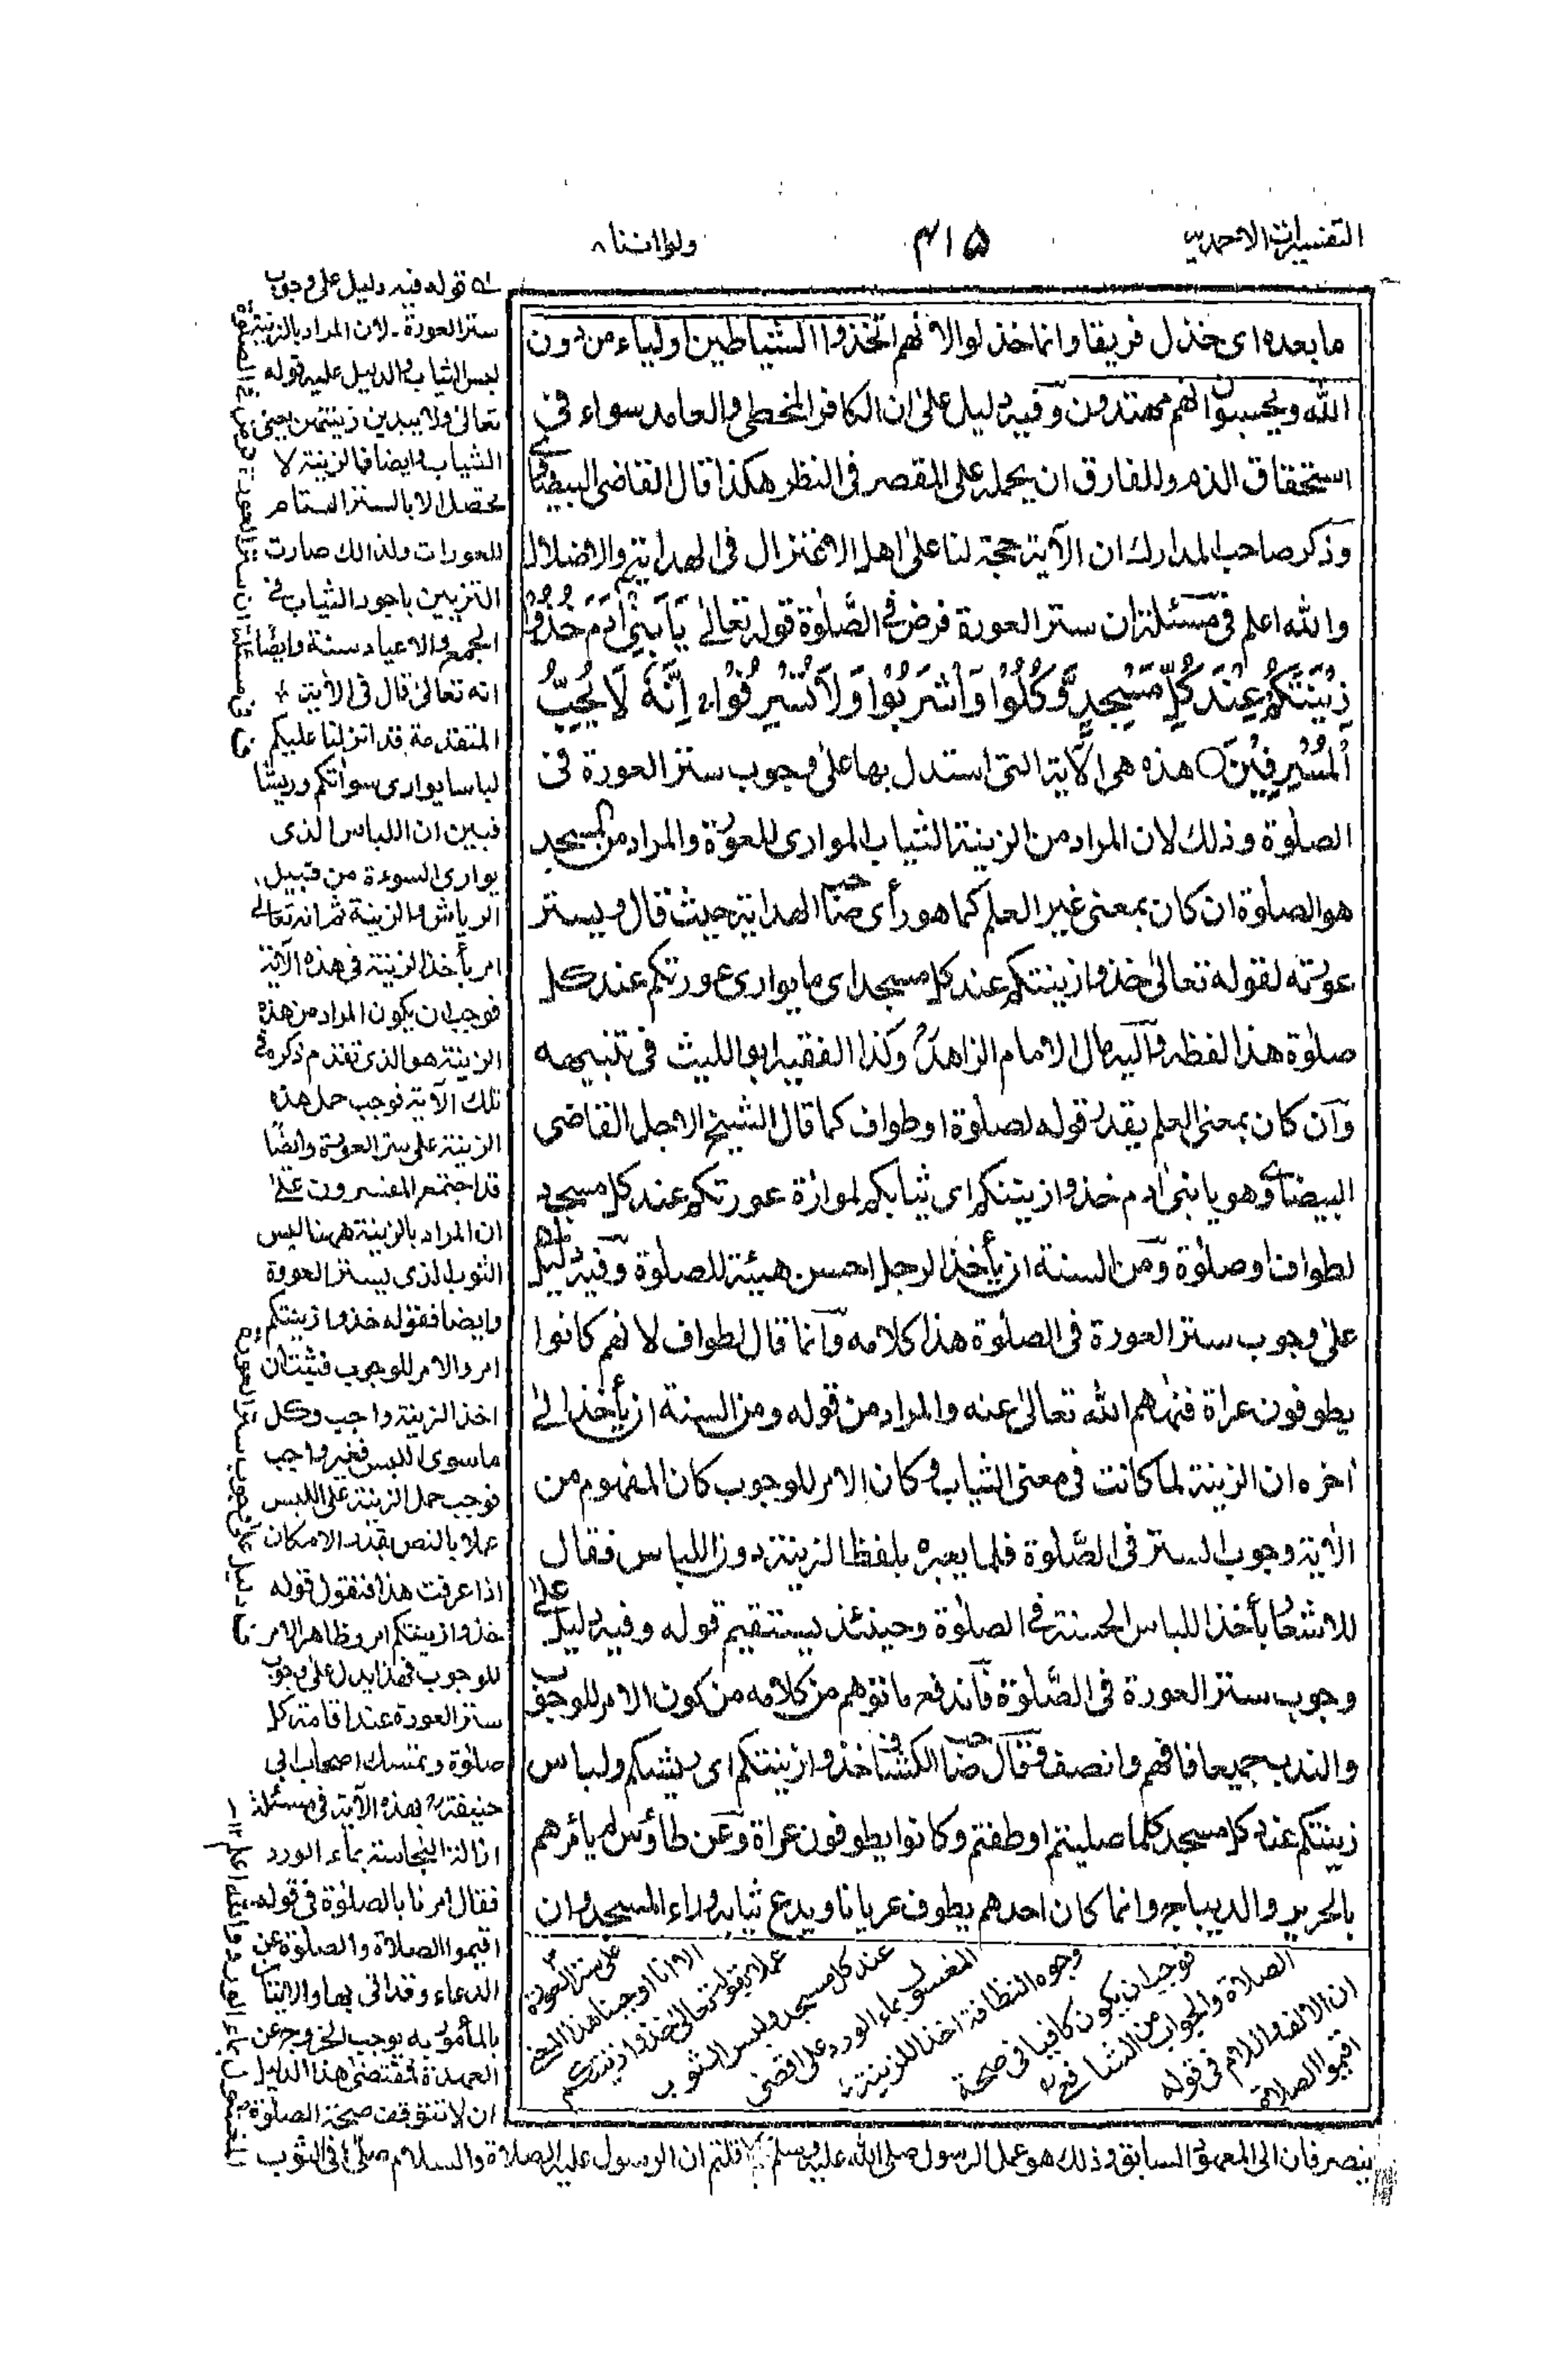 التفسيرات الاحمدية
۴۱۵
ولو اننا ۸
ما بعده اى خذل فريقا وانما خذلوا لانهم اتخذوا الشياطين اولياء من دون
الله ويحسبون انهم مهتدون وفيه دليل على ان الكافر المخطى والعامد سواء فى
استحقاق الذم وللفارق ان يحمله على المقصر فى النظر هكذا قال القاضى البيضاوى
وذكر صاحب المدارك ان الآية حجة لنا على اهل الاعتزال فى الهداية والاضلال
والله اعلم فى مسئلة ان ستر العورة فرض فى الصلوة قوله تعالى يَا بَنِىْ اٰدَمَ خُذُوْا
زِيْنَتَكُمْ عِنْدَ كُلِّ مَسْجِدٍ وَّكُلُوْا وَاشْرَبُوْا وَلَا تُسْرِفُوْا اِنَّهٗ لَا يُحِبُّ
الْمُسْرِفِيْنَ هذه هى الآية التى استدل بها على وجوب ستر العورة فى
الصلوة وذلك لان المراد من الزينة الثياب الموارى للعورة والمراد من المسجد
هو الصلوة ان كان بمعنى غير العلم كما هو رأى صاحب الهداية حيث قال ويستر
عورته لقوله تعالى خذوا زينتكم عند كل مسجد اى ما يوارى عورتكم عند كل
صلوة هذا لفظه واليه مال الامام الزاهد وكذا الفقيه ابو الليث فى تنبيهه
وان كان بمعنى العلم يقدر قوله لصلوة او طواف كما قال الشيخ الاجل القاضى
البيضاوى وهو يا بنى ادم خذوا زينتكم اى ثيابكم لمواراة عورتكم عند كل مسجد
لطواف او صلوة ومن السنة ان يأخذ الرجل احسن هيئة للصلوة وفيه دليل
على وجوب ستر العورة فى الصلوة هذا كلامه وانما قال لطواف لانهم كانوا
يطوفون عراة فنهاهم الله تعالى عنه والمراد من قوله ومن السنة ان يأخذ الى
اخره ان الزينة لما كانت فى معنى الثياب وكان الامر للوجوب كان المفهوم من
الآية وجوب الستر فى الصلوة فلما يعبره بلفظ الزينة دون اللباس فقال
للاشعار بأخذ اللباس الحسنة فى الصلوة وحينئذ يستقيم قوله وفيه دليل على
وجوب ستر العورة فى الصلوة فاندفع ما توهم من كلامه من كون الامر للوجوب
والندب جميعا فافهم وانصف وقال صاحب الكشاف خذوا زينتكم اى ريشكم ولباس
زينتكم عند كل مسجد كلما صليتم او طفتم وكانوا يطوفون عراة وعن طاؤس لم يأمرهم
بالحرير والديباج وانما كان احدهم يطوف عريانا ويدع ثيابه وراء المسجد وان
قوله فيه دليل على وجوب
ستر العورة ـ لان المراد بالزينة
لبس الثياب والدليل عليه قوله
تعالى ولا يبدين زينتهن يعنى
الثياب وايضا فالزينة لا
تحصل الا بالستر التام
للعورات ولذالك صارت
التزيين باجود الثياب فى
الجمع والاعياد سنة وايضا
انه تعالى قال فى الآية
المتقدمة قد انزلنا عليكم
لباسا يوارى سوأتكم وريشا
فبين ان اللباس الذى
يوارى السوءة من قبيل
الرياش والزينة ثم انه تعالى
امر بأخذ الزينة فى هذه الآية
فوجب ان يكون المراد من هذه
الزينة هو الذى تقدم ذكره فى
تلك الآية فوجب حمل هذه
الزينة على ستر العورة وايضا
قد اجتمع المفسرون على
ان المراد بالزينة ههنا لبس
الثوب الذى يستر العورة
وايضا فقوله خذوا زينتكم
امر والامر للوجوب فثبت ان
اخذ الزينة واجب وكل
ما سوى اللبس فغير واجب
فوجب حمل الزينة على اللبس
عملا بالنص بقدر الامكان
اذا عرفت هذا فنقول قوله
خذوا زينتكم امر وظاهر الامر
للوجوب فهذا يدل على وجوب
ستر العورة عند اقامة كل
صلوة وتمسك اصحاب ابى
حنيفة بهذه الآية فى مسئلة
ازالة النجاسة بماء الورد
فقال امرنا بالصلوة فى قوله
اقيموا الصلاة والصلوة عن
الدعاء وقد اتى بها والاتيان
بالمأمور به يوجب الخروج عن
العهدة فمقتضى هذا الدليل
ان لا تتوقف صحة الصلوة
على ستر العورة
الا انا اوجبنا هذا المعنى
عملا بقوله تعالى خذوا زينتكم
عند كل مسجد ولبس الثوب
المغسول بماء الورد على اقصى
وجوه النظافة اخذ الزينة
فوجب ان يكون كافيا فى صحة
الصلاة والجواب من الشافعى
ان الالف واللام فى قوله
اقيموا الصلاة
ينصرفان الى المعهود السابق وذلك هو عمل الرسول صلى الله عليه وسلم قلتم ان الرسول عليه الصلاة والسلام صلى فى الثوب
المغسول بماء الورد والله اعلم ۱۲
ف فى مسئلة ان ستر العورة فرض فى الصلوة
ف دليل على وجوب ستر العورة